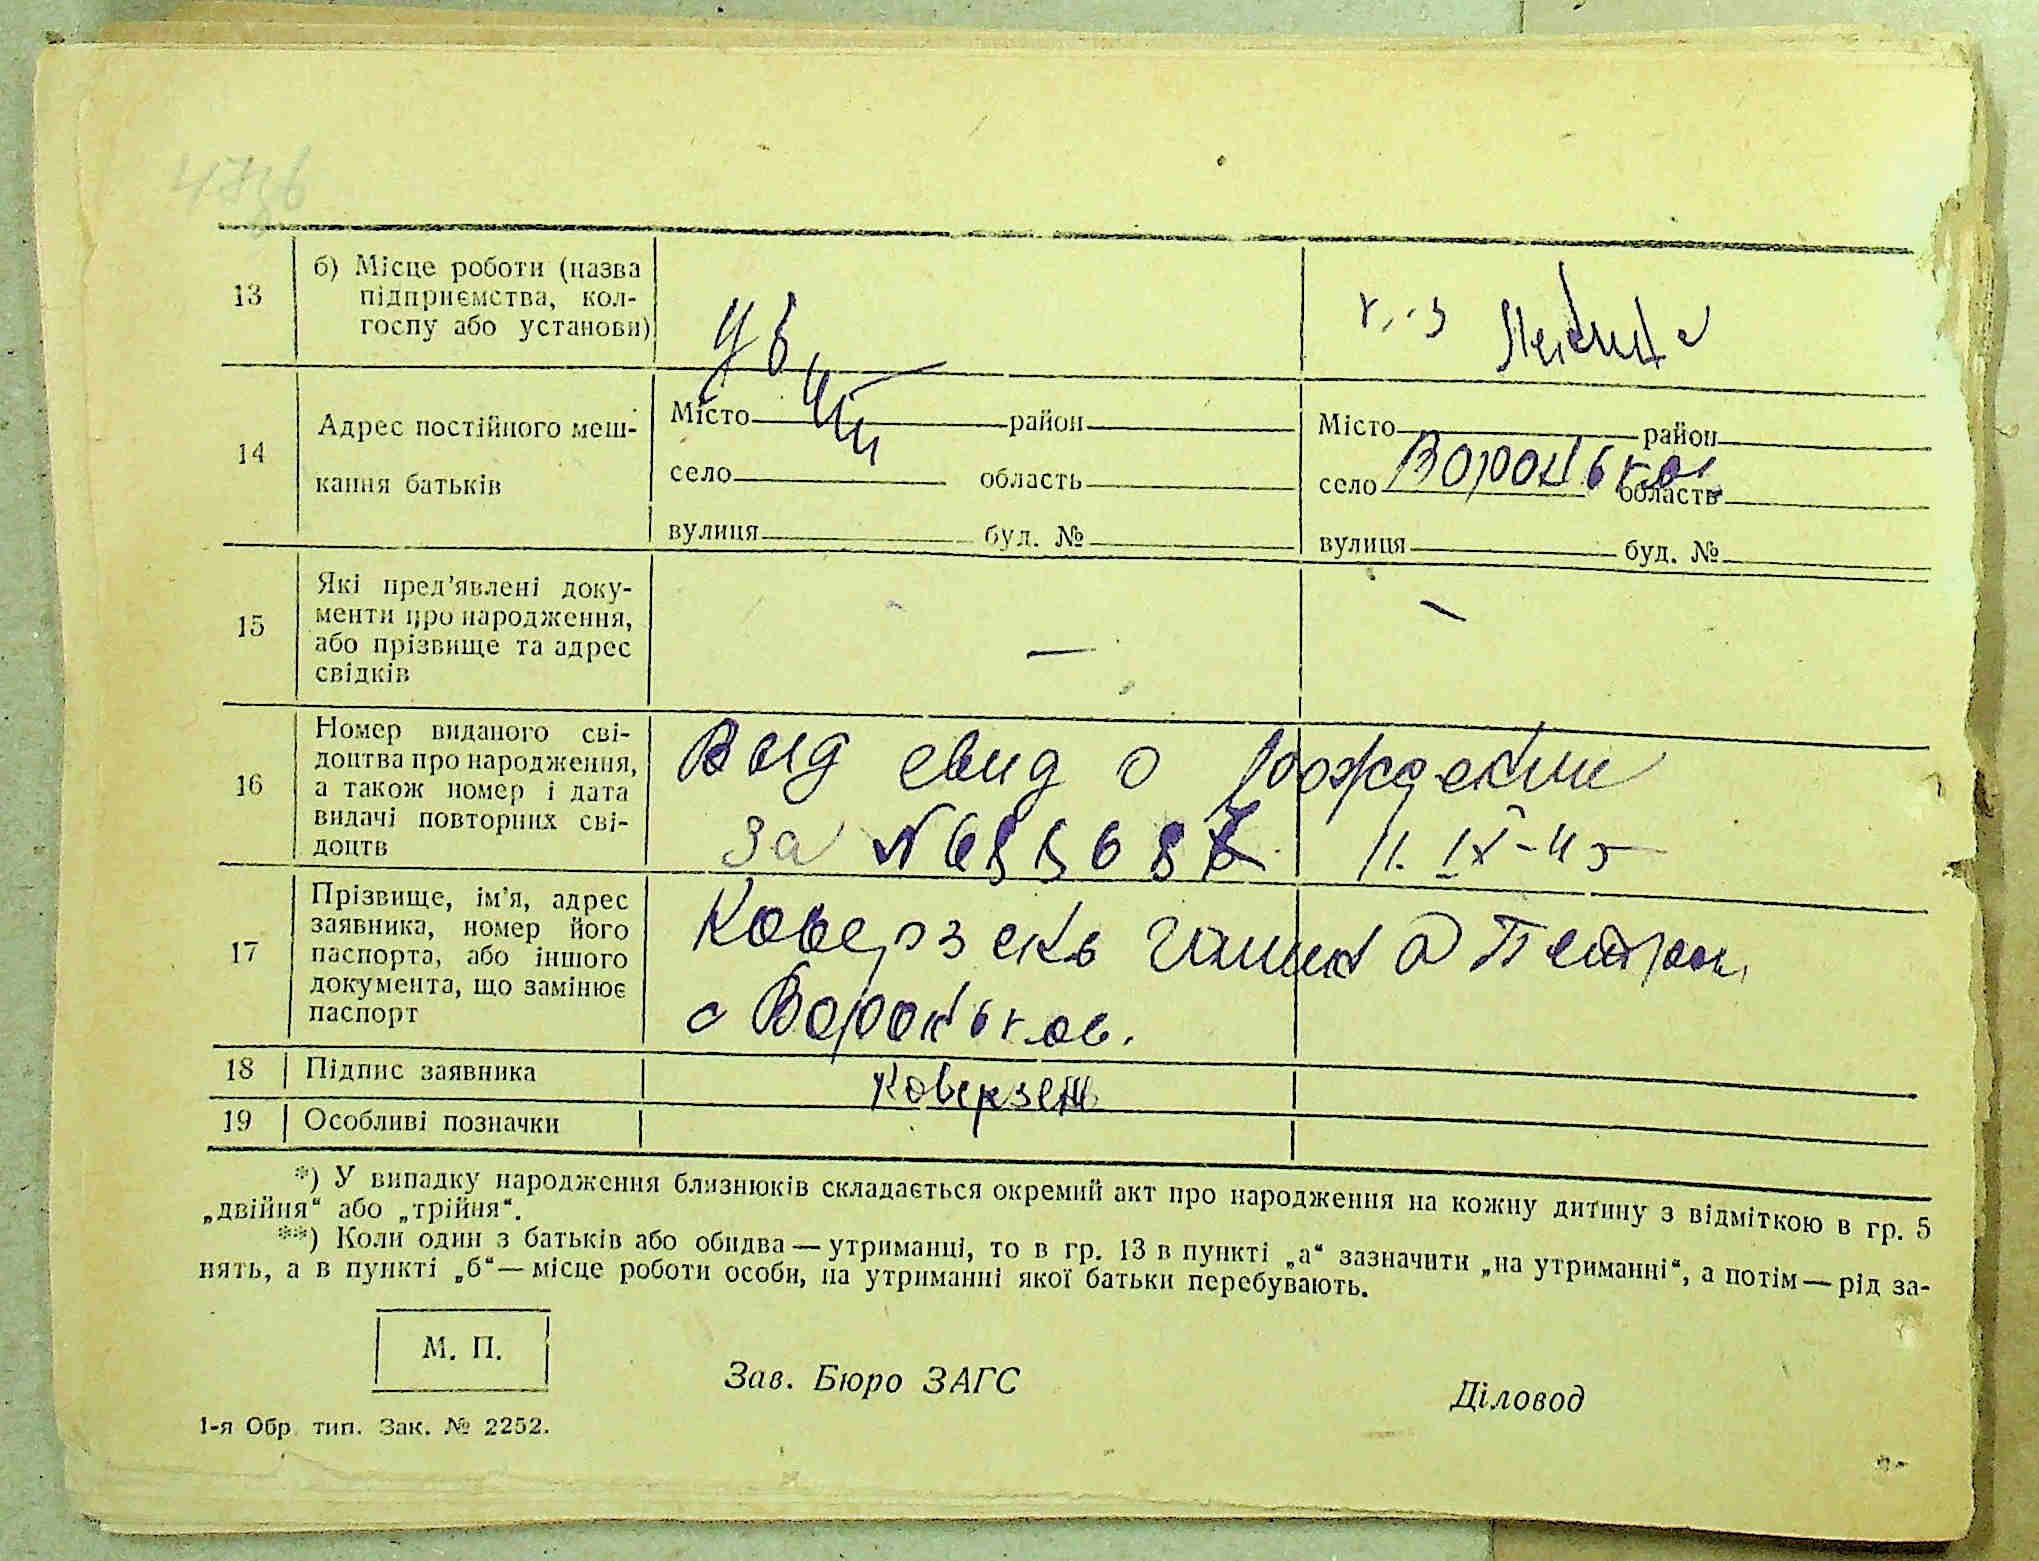 13
б) Місце роботи (назва
підприємства, кол-
госпу або установи)
14
Адрес постійного меш-
кання батьків
Місто район
село область
вулиця буд. №
Місто район
село Вороньков область
вулиця буд. №
15
Які пред’явлені доку-
менти про народження,
або прізвище та адрес
свідків
—
—
16
Номер виданого сві-
доцтва про народження,
а також номер і дата
видачі повторних сві-
доцтв
Выд свид о рождении
за № 11. IX-45
17
Прізвище, ім’я, адрес
заявника, номер його
паспорта, або іншого
документа, що замінює
паспорт
Коверзень
с Вороньков.
18
Підпис заявника
Коверзень
19
Особливі позначки
*) У випадку народження близнюків складається окремий акт про народження на кожну дитину з відміткою в гр. 5
„двійня“ або „трійня“.
**) Коли один з батьків або обидва — утриманці, то в гр. 13 в пункті „а“ зазначити „на утриманні“, а потім — рід за-
нять, а в пункті „б“ — місце роботи особи, на утриманні якої батьки перебувають.
М. П.
Зав. Бюро ЗАГС
Діловод
1-я Обр. тип. Зак. № 2252.